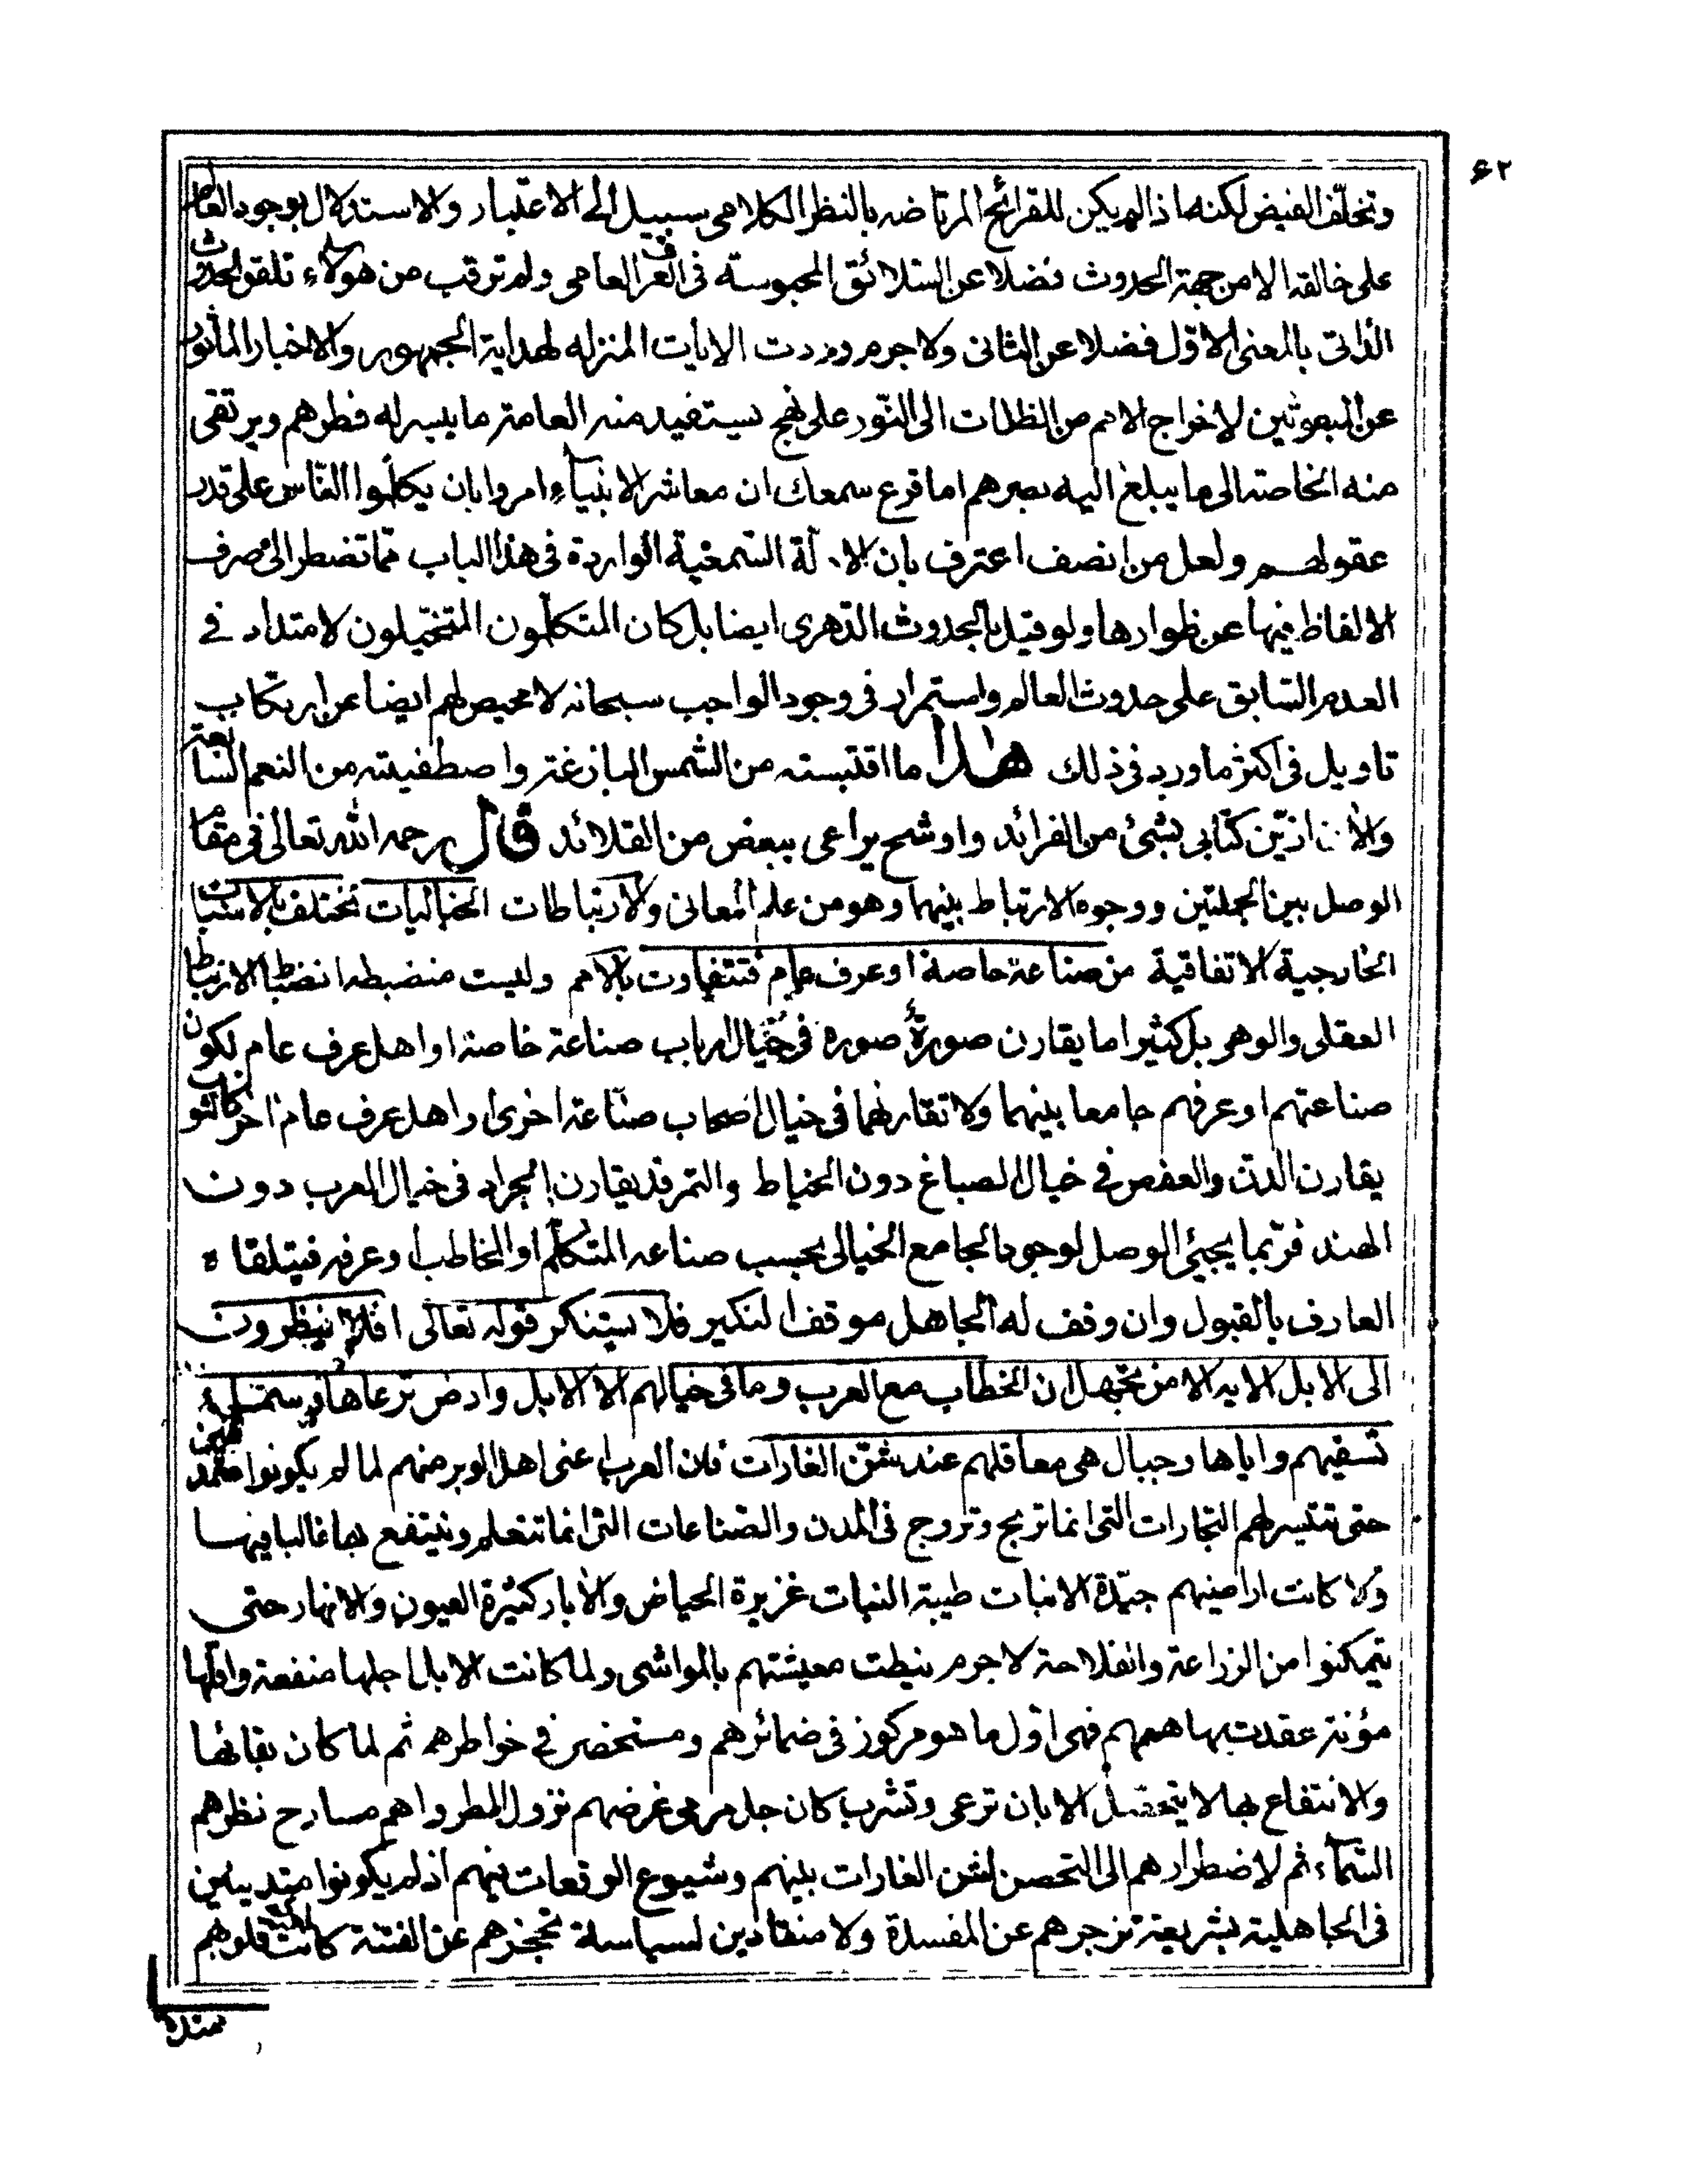 ۶۲
وتخلّف الفيض لكنه اذ الم يكن للقرائح المرتاضه بالنظر الكلامى سبيل الى الاعتبار والاستدلال بوجود العالم
على خالقه الا من جهة الحدوث فضلا عن السّلائق المحبوسة فى العرف العامى ولم ترقب من هولاء تلقى الحدوث
الذاتى بالمعنى الاوّل فضلا عن الثانى ولا جرم وردت الايات المنزله لهداية الجمهور والاخبار الماثورة
عن المبعوثين لاخراج الامم من الظلمات الى النّور على نهج يستفيد منه العامة ما يسر له فطرهم ويرتقى
منه الخاصة الى ما يبلغ اليه بصرهم اما قرع سمعك ان معاشر الانبياء امروا بان يكلّموا النّاس على قدر
عقولهم ولعل من انصف اعترف بان الادلة السّمعية الواردة فى هذا الباب ممّا تضطر الى صرف
الالفاظ فيها عن ظواهرها ولو قيل بالحدوث الدّهرى ايضا بل كان المتكلّمون المتخيّلون لامتداد فى
العدم السّابق على حدوث العالم واستمرار فى وجود الواجب سبحانه لا محيص لهم ايضا عن ارتكاب
تاويل فى اكثر ما ورد فى ذلك هذا ما اقتبسته من الشمس البازغة واصطفيته من النعم السّابغة
والأن ازيّن كتابى بشئ من الفرائد واوشح يراعى ببعض من القلائد قال رحمه الله تعالى فى مقام
الوصل بين الجملتين ووجوه الارتباط بينهما وهو من علم المعانى والارتباطات الخياليات تختلف بالاسباب
الخارجية الاتفاقية من صناعة خاصة او عرف عام فتتفاوت بالامم وليست منضبطه انضباط الارتباط
العقلى والوهمى بل كثيرا ما يقارن صورةٌ صورة فى خيال ارباب صناعة خاصة او اهل عرف عام لكون
صناعتهم او عرفهم جامعا بينهما ولا تقارنها فى خيال اصحاب صناعة اخرى او اهل عرف عام اخر كالثوب
يقارن الدن والعفص فى خيال الصباغ دون الخياط والتمر قد يقارن الجراد فى خيال العرب دون
الهند فربّما يجيئ الوصل لوجود الجامع الخيالى بحسب صناعه المتكلّم او المخاطب او عرفه فيتلقاه
العارف بالقبول وان وقف له الجاهل موقف النكير فلا يستنكر قوله تعالى افلا ينظرون
الى الابل الايه الا من يجهل ان الخطاب مع العرب وما فى خيالهم الا الابل وارض ترعاها وسماء
تسقيهم واياها وجبال هى معاقلهم عند شنّ الغارات فان العرب اعنى اهل الوبر منهم لما لم يكونوا متمدنين
حتى تتيسر لهم التجارات التى انما تربح وتروج فى المدن والصّناعات التى انما تتعلم وينتفع بها غالبا فيها
ولا كانت اراضيهم جيّدة الانبات طيبة النبات غزيرة الحياض والأبار كثيرة العيون والانهار حتى
يتمكنوا من الزراعة والفلاحة لا جرم نيطت معيشتهم بالمواشى ولما كانت الابل اجلها منفعة واقلّها
مؤنة عقدت بها هممهم فهى اوّل ما هو مركوز فى ضمائرهم ومستحضر فى خواطرهم ثم لما كان بقائها
والانتفاع بها لا يتحصّل الا بان ترعى وتشرب كان جل مرمى غرضهم نزول المطر واهم مسارح نظرهم
السّماء ثم لاضطرارهم الى التحصن لشن الغارات بينهم وشيوع الوقعات فيهم اذ لم يكونوا متديينين
فى الجاهلية بشريعة تزجرهم عن المفسدة ولا منقادين لسياسة تحجزهم عن الفتنة كانت قلوبهم